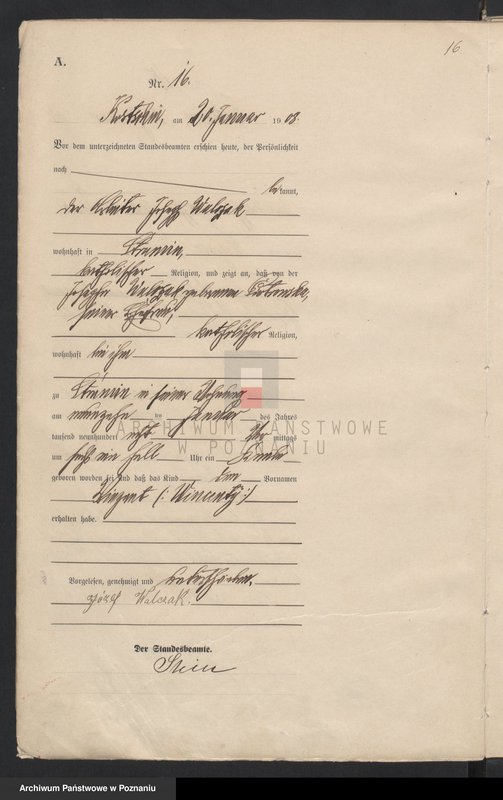 16
A.
Nr. 16.
Kostschin, am 20. Januar 1908.
Vor dem unterzeichneten Standesbeamten erschien heute, der Persönlichkeit
nach
bekannt,
der Arbeiter Joseph Walczak
wohnhaft in
katholischer Religion, und zeigt an, daß von der
Josepha Walczak geborenen
seiner Ehefrau,
katholischer Religion,
wohnhaft bei ihm
zu in seiner Wohnung
am neunzehn ten Januar des Jahres
tausend neunhundert acht Vor mittags
um sechs ein halb Uhr ein Kind
geboren worden sei und daß das Kind Vornamen
Vinzent (: Wincenty :)
erhalten habe.
Vorgelesen, genehmigt und unterschrieben.
Józef Walczak.
Der Standesbeamte.
Stein
ARCHIWUM PAŃSTWOWE
W POZNANIU
Archiwum Państwowe w Poznaniu